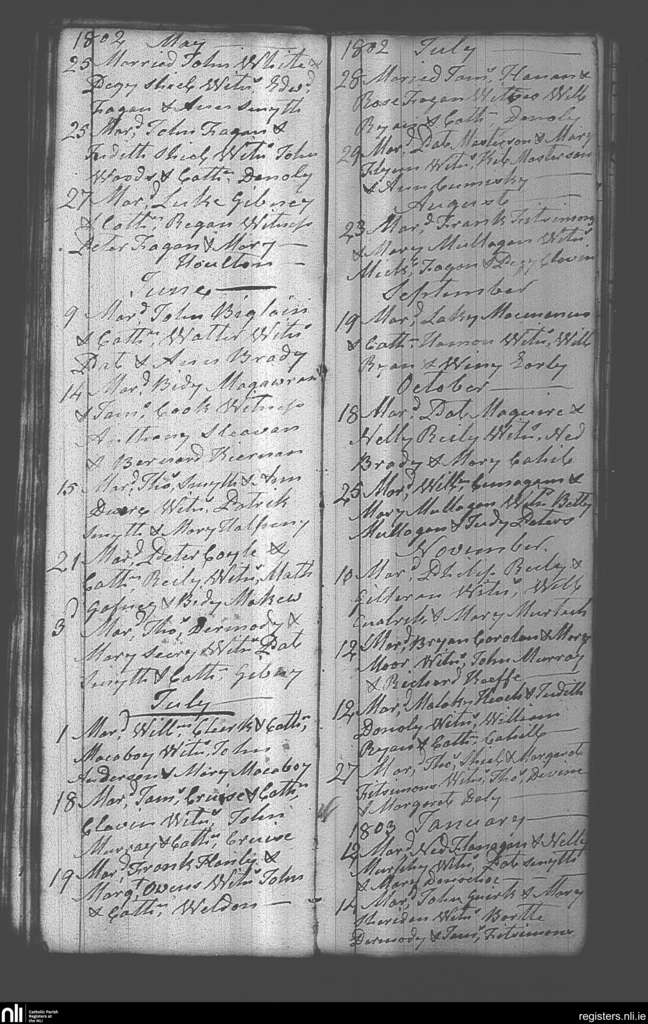 1802 May
25 Married John White &
Pegy Shiels Witns Edwd
Fagan & Ann Smyth
25 Mard John Fagan &
Judith Shiels Witns John
Woods & Cathn Donoly
27 Mard Luke Gibney
& Cathn Regan Witness
Peter Fagan & Mary
Houlton
June
9 Mard John Biglain
& Cathn Walter Witns
Pat & Ann Brady
14 Mard Bidy Magawran
& Jams Cook Witness
Anthony
& Bernard Kiernan
15 Mard Thos Smyth & Ann
Witns Patrick
Smyth & Mary Halpeny
21 Mard Peter Coyle &
Cathn Reily Witns Math
Gafney & Bidy
3d Mard Thos Dermody &
Mary Witns Pat
Smyth & Cathn Gibney
July
1 Mard Willm Clerk & Cathn
Macaboy Witns John
Anderson & Mary Macaboy
18 Mard Jams Cruise & Cathn
Claven Witns John
Murray & Cathn Cruise
19 Mard Frank &
Margt Owens Witns John
& Cathn Weldon
1802 July
28 Maried Jams Hanan &
Rose Fagan Witness Will
Ryan & Cathn Donoly
29 Mard Pat Masterson & Mary
Flynn Witns Masterson
& Ann
August
23 Mard Frank Fitsimons
& Mary Mullagan Witns
Mick Fagan & Pegy Claven
September
19 Mard Laky
& Cathn Witns Will
Ryan & Winy
October
18 Mard Pat Maguire &
Nelly Reily Witns Ned
Brady & Mary Cahil
25 Mard Willm &
Mary Mullagan Witns Betty
Mullagan & Judy Peters
November.
10 Mard Philip Reily &
Witns Will
& Mary Murtach
12 Mard Bryan Corolan & Mary
Moor Witns John Murray
& Richard Keeffe
12 Mard Malaky & Judith
Donoly Witns William
Ryan & Cathn
27 Mard Thos Shiel & Margaret
Fitsimons Witns Thos Devine
& Margaret Daly
1803 January
12 Mard Ned Flanagan & Nelly
Murphy Witns Pat Smyth
& Mary
14 Mard John Quirk & Mary
Sheridan Witns Bartle
Dermody & Jams Fitsimons
nli
Catholic Parish
Registers at
the NLI
registers.nli.ie